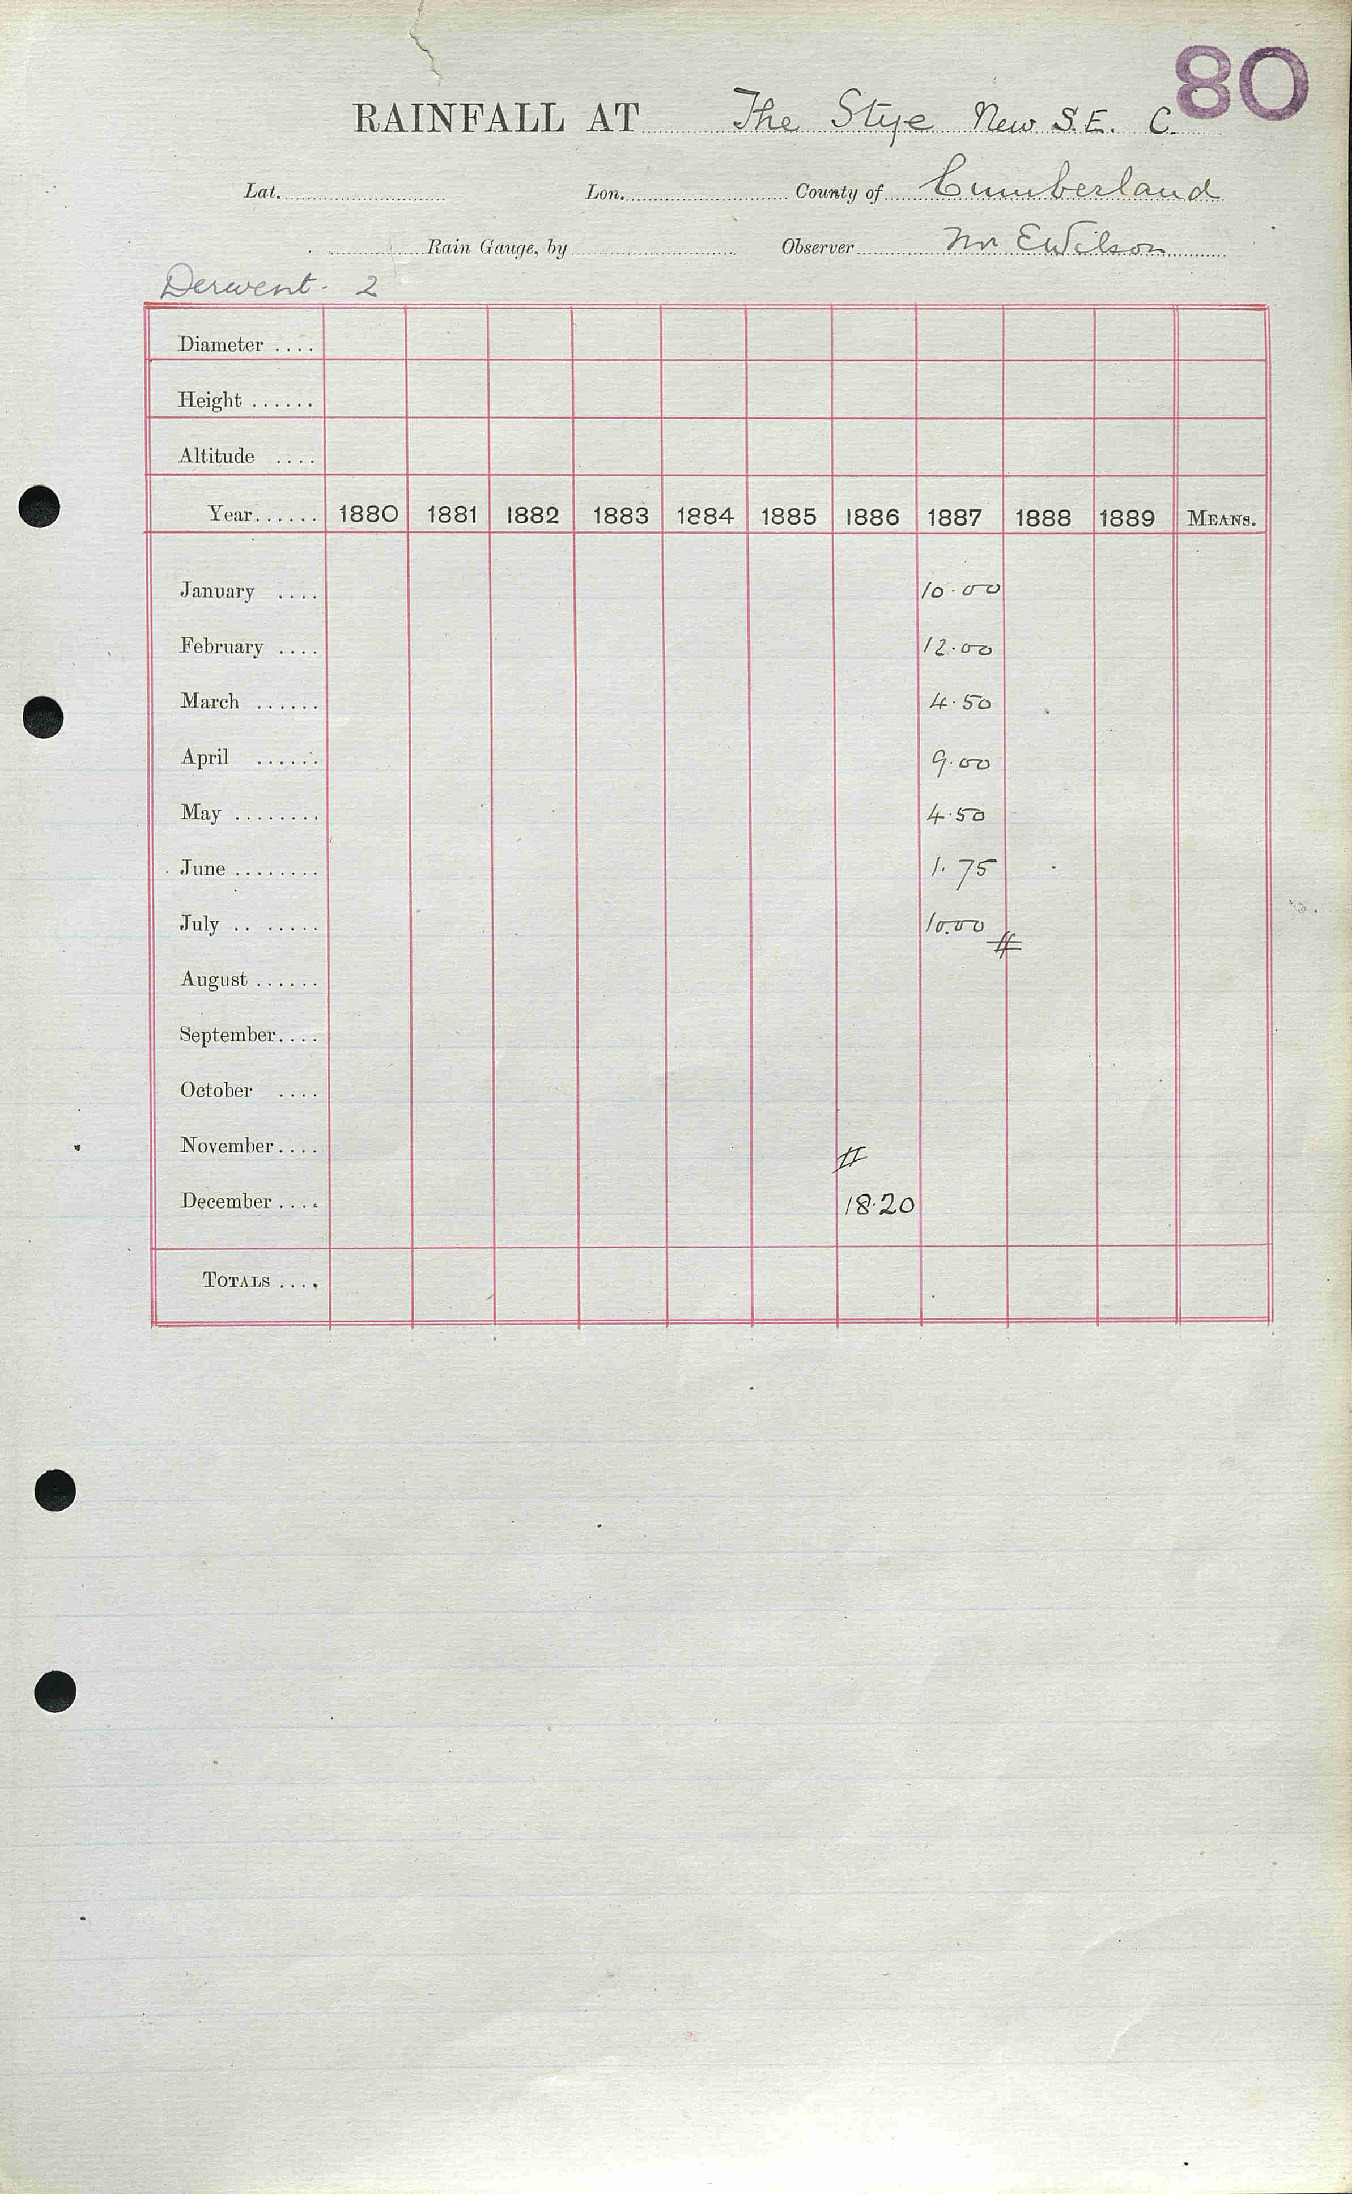 80
RAINFALL AT The Stye New S.E. C.
Lat. Lon. County of Cumberland
Rain Gauge, by Observer Mr E Wilson
Derwent. 2
Diameter ....
Height ......
Altitude ....
Year...... 1880 1881 1882 1883 1884 1885 1886 1887 1888 1889 MEANS.
January .... 10.00
February .... 12.00
March ...... 4.50
April ...... 9.00
May ........ 4.50
June ........ 1.75
July .. ..... 10.00
#
August ......
September....
October ....
November....
#
December .... 18.20
TOTALS ....